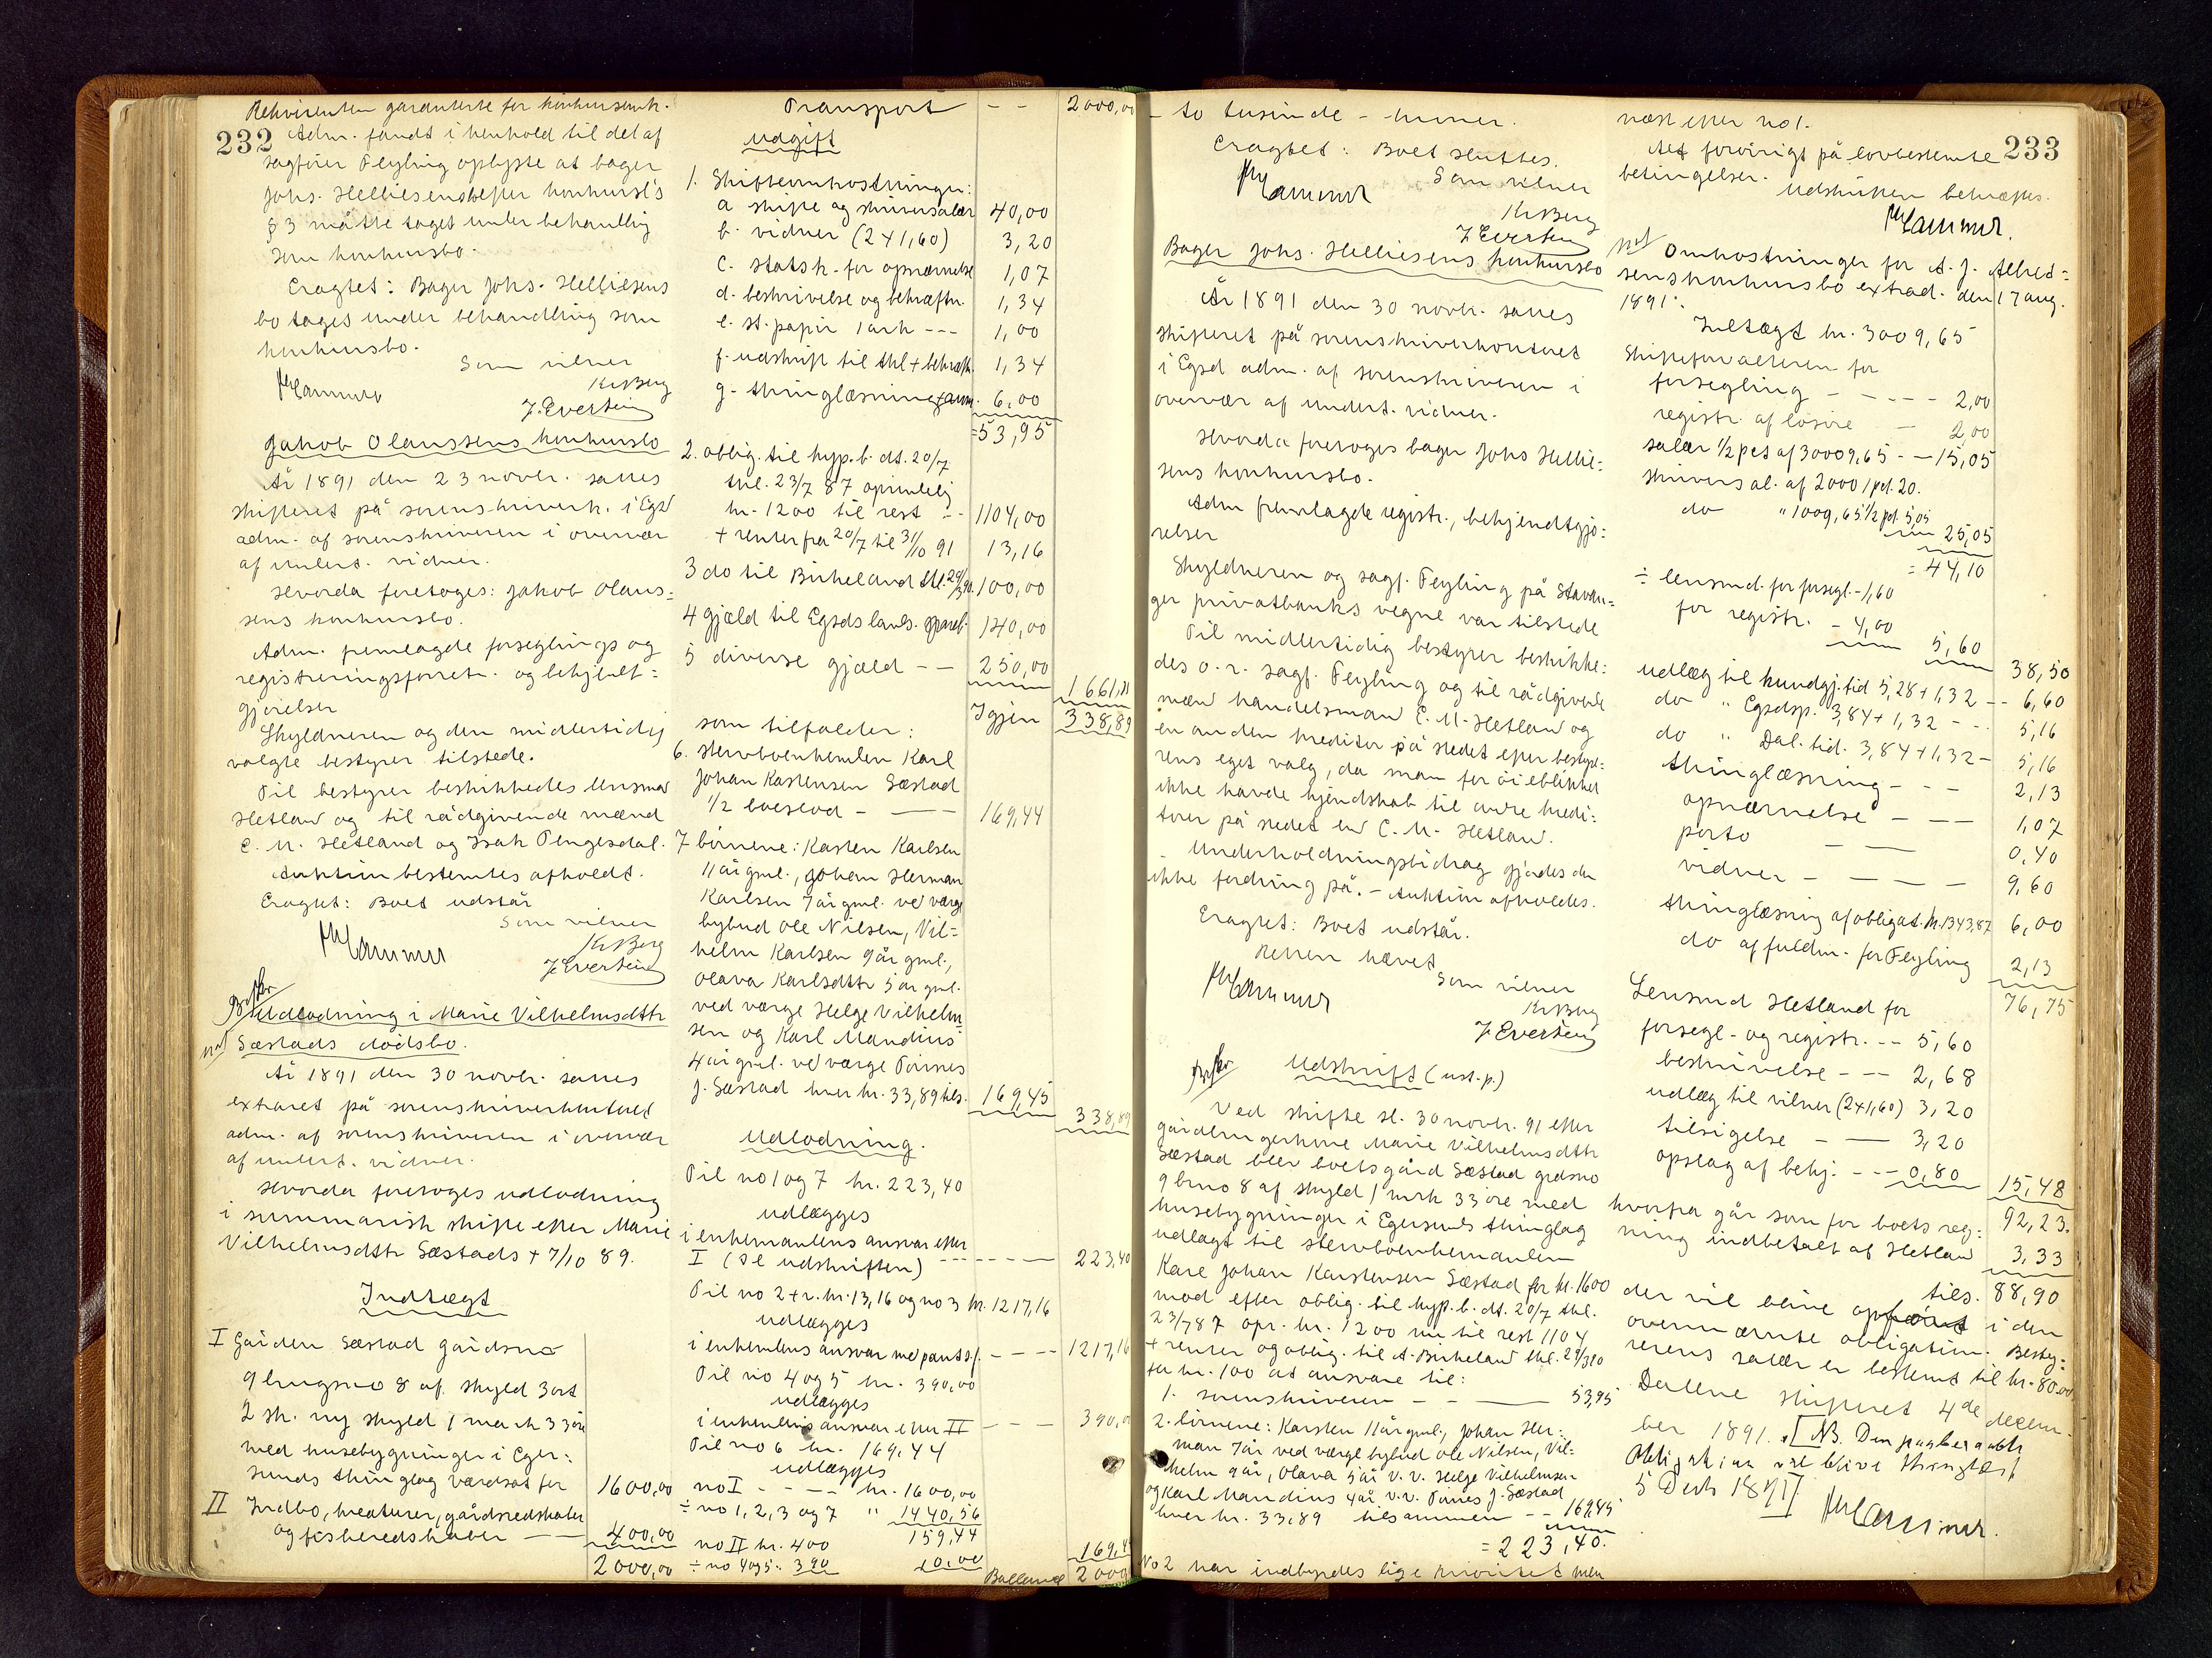 232
Rekvirenten garanterte for konkursomk.
Adm. fandt i henhold til det af
sagfører Feyling oplyste at bager
Johs. Helliesens efter konkursl's
§ 3 måtte taget under behandling
som konkursbo.
Eragtet: Bager Johs. Helliesens
bo tages under behandling som
konkursbo.
Som vidner
Hammer KrBerg
J. Evertsen
Jakob Olaussens konkursbo
År 1891 den 23 novbr. sattes
skifteret på sorenskriverk. i Egsd
adm. af sorenskriveren i overvær
af undert. vidner.
Hvorda foretoges: Jakob Olaus=
sens konkursbo.
Adm. fremlagde forseglings og
registreringsforretn. og bekjendt=
gjørelser
Skyldneren og den midlertidig
valgte bestyrer tilstede.
Til bestyrer beskikkedes lensmd
Hetland og til rådgivende mænd
C. M. Hetland og Isak Tengesdal.
Auktion bestemtes afholdt.
Eragtet: Boet udstår
Som vidner
Hammer KrBerg
J Evertsen
Udlodning i Marie Vilhelmsdttr
Sæstads dødsbo.
År 1891 den 30 novbr. sattes
extraret på sorenskriverkontoret
adm. af sorenskriveren i overvær
af undert. vidner.
Hvorda foretoges udlodning
i summarisk skifte efter Marie
Vilhelmsdttr Sæstads + 7/10 89.
Indtægt
I Gården Sæstad gårdsno
9 brugsno 8 af skyld 3 ort
2 sk. ny skyld 1 mark 33 øre
med husebygninger i Eger=
sunds thinglag værdsat for 1600,00
II Indbo, kreaturer, gårdsredskaber
og fiskeredskaber — — 400,00
2000,00
Transport — — 2000,00
Udgift
1. Skifteomkostninger:
a skifte og skriversalær 40,00
b. vidner (2 x 1,60) 3,20
c. statsk. for opnævnelse 1,07
d. beskrivelse og bekræftn. 1,34
e. st. papir 1 ark - - - 1,00
f. udskrift til thl + bekræftn. 1,34
g. thinglæsning 6,00
= 53,95
2. oblig. til hyp. b. dt. 20/7
thl. 23/7 87 oprindelig
kr. 1200 til rest - - 1104,00
+ renter fra 20/7 til 31/10 91 13,16
3 do til Birkeland thl. 100,00
4 gjæld til Egsds 140,00
5 diverse gjæld — — 250,00
1661,11
Igjen 338,89
som tilfalder:
6. Stervboenkemanden Karl
Johan Karstensen Sæstad
1/2 boeslod - — 169,44
7 børnene: Karsten Karlsen
11 år gml., Johan Herman
Karlsen 7 år gml. ved værge
bybud Ole Nilsen, Vil=
helm Karlsen 9 år gml.,
Olava Karlsdttr 5 år gml.
ved værge Helge Vilhelm=
sen og Karl Mandius
4 år gml. ved værge Tønnes
J. Sæstad hver kr. 33,89 tils. 169,45
338,89
Udlodning.
Til no 1 og 7 kr. 223,40
udlægges
i enkemandens ansvar efter
I (se udskriften) - - - - - - 223,40
Til no 2 + r. kr. 13,16 og no 3 kr. 1217,16
udlægges
i enkemdens ansvar med pant i I. - - - 1217,16
Til no 4 og 5 kr. 390,00
udlægges
i enkemdens ansvar efter II - - - 390,00
Til no 6 kr. 169,44
udlægges
no I - - - - kr. 1600,00
÷ no 1, 2, 3 og 7 " 1440,56
159,44
no II kr. 400
÷ no 4 og 5: 390 10,00 169,44
Ballance 2000
233
— to tusinde — kroner.
Eragtet: Boet sluttes.
Som vidner
Hammer KrBerg
J Evertsen
Bager Johs. Helliesens konkursbo
År 1891 den 30 novbr. sattes
skifteret på sorenskriverkontoret
i Egsd adm. af sorenskriveren i
overvær af undert. vidner.
Hvorda foretoges bager Johs Hellie=
sens konkursbo.
Adm fremlagde registr., bekjendtgjø=
relser
Skyldneren og sagf. Feyling på Stavan=
ger privatbanks vegne var tilstede
Til midlertidig bestyrer beskikke=
des o. r. sagf. Feyling og til rådgivende
mænd handelsmand C. M. Hetland og
en anden kreditor på stedet efter besty=
rens eget valg, da man for øieblikket
ikke havde kjendskab til andre kredi=
torer på stedet end C. M. Hetland.
Underholdningsbidrag gjordes der
ikke fordring på. - Auktion afholdes.
Eragtet: Boet udstår.
Retten hævet
Som vidner
Hammer KrBerg
J Evertsen
Udskrift (ust. p.)
Ved skifte sl. 30 novbr. 91 efter
gårdbrugerkone Marie Vilhelmsdttr
Sæstad blev boets gård Sæstad grdsno
9 brno 8 af skyld 1 mrk 33 øre med
husebygninger i Egersunds thinglag
udlagt til stervboenkemanden
Karl Johan Karstensen Sæstad for kr. 1600
mod efter oblig. til hyp. b. dt. 20/7 thl.
23/7 87 opr. kr. 1200 nu til rest 1104
+ renter og oblig. til A. Birkeland thl.
for kr. 100 at ansvare til:
1. sorenskriveren — — — 53,95
2. børnene: Karsten 11 år gml., Johan Her=
man 7 år ved værge bybud Ole Nilsen, Vil=
helm 9 år, Olava 5 år v. v. Helge Vilhelmsen
og Karl Mandius 4 år v. v. Tønnes J. Sæstad
hver kr. 33,89 tilsammen - - 169,45
= 223,40.
No 2 har indbyrdes lige prioritet men
næst efter no 1.
Alt forøvrigt på lovbestemte
betingelser.
Udskriften bekræftes.
Hammer.
Omkostninger for A. J. Albred=
sens konkursbo extrad. den 17 aug.
1891.
Indtægt kr. 3009,65
Skifteforvalteren for
forsegling - - - - - 2,00
registr. af løsøre — 2,00
salær 1/2 pct af 3009,65 - - 15,05
skriversal. af 2000 1 pct. 20.
do " 1009,65 1/2 pct 5,05
25,05
= 44,10
÷ lensmd. for forsegl. - 1,60
for registr. - 4,00
5,60 38,50
udlæg til kundgj. tid 5,28 + 1,32 - - 6,60
do " Egsdsp. 3,84 + 1,32 - - 5,16
do " Dal. tid. 3,84 + 1,32 - 5,16
thinglæsning - - - 2,13
opnævnelse - — — 1,07
porto — — 0,40
vidner - — — — 9,60
thinglæsning af obligat. kr. 1343,87 6,00
do af fuldm. for Feyling 2,13
76,75
Lensmd Hetland for
forsegl- og registr. - - 5,60
beskrivelse - - - 2,68
udlæg til vidner (2 x 1,60) 3,20
tilsigelse — — 3,20
opslag af bekj. - - - 0,80 15,48
92,23.
hvorfra går som for boets reg=
ning indbetalt af Hetland 3,33
tils. 88,90
der vil blive opført i den
overnævnte obligation. Besty=
rerens salær er bestemt til kr. 80.00
Dalene skifteret 4de decem=
ber 1891. [NB. Den paaberaabte
Obligation vil blive thinglæst
5 Decbr 1891]
Hammer.